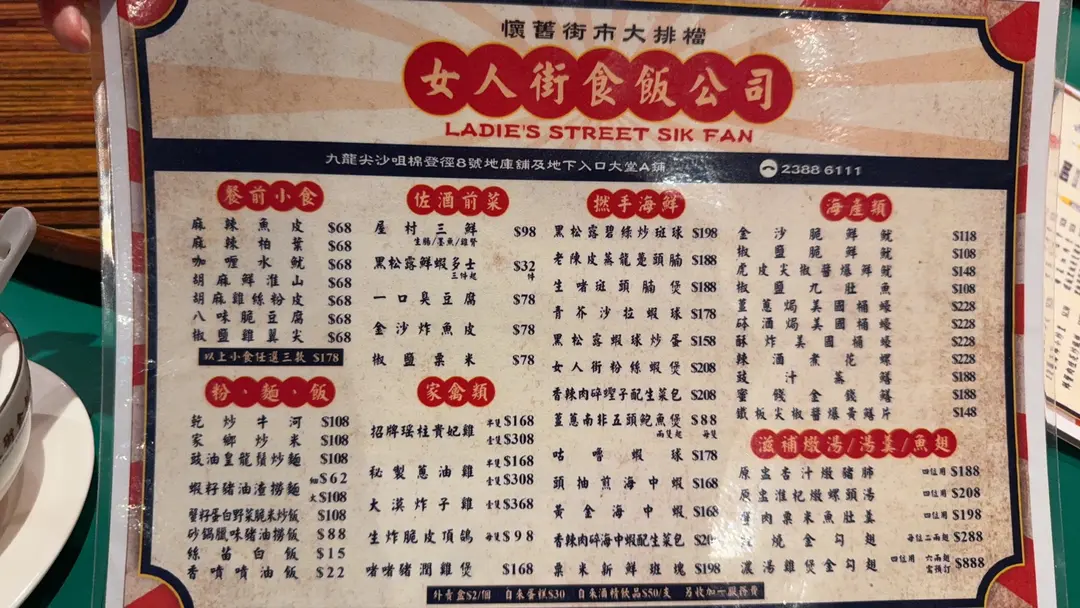 懷舊街市大排檔
女人街食飯公司
LADIE'S STREET SIK FAN
九龍尖沙咀棉登徑8號地庫舖及地下入口大堂A舖
2388 6111
餐前小食
麻辣魚皮 $68
麻辣柏葉 $68
咖喱水魷 $68
胡麻鮮淮山 $68
胡麻雞絲粉皮 $68
八味脆豆腐 $68
椒鹽雞翼尖 $68
以上小食任選三款 $178
粉・麵・飯
乾炒牛河 $108
家鄉炒米 $108
豉油皇龍鬚炒麵 $108
蝦籽豬油渣撈麵 細$62
大$108
蟹籽蛋白野菜脆米炒飯 $108
砂鍋臘味豬油撈飯 $88
絲苗白飯 $15
香噴噴油飯 $22
佐酒前菜
屋村三鮮 $98
生腸/墨魚/雞腎
黑松露鮮蝦多士 $32
三件起
一口臭豆腐 $78
金沙炸魚皮 $78
椒鹽粟米 $78
家禽類
招牌瑤柱貴妃雞 半隻$168
壹隻$308
秘製蔥油雞 半隻$168
壹隻$308
大漠炸子雞 壹隻$368
生炸脆皮頂鴿 每隻$98
啫啫豬潤雞煲 $168
撚手海鮮
黑松露碧綠炒斑球 $198
老陳皮蒸龍躉頭腩 $188
生啫斑頭腩煲 $188
青芥沙拉蝦球 $178
黑松露蝦球炒蛋 $158
女人街粉絲蝦煲 $208
香辣肉碎蟶子配生菜包 $208
薑蔥南非五頭鮑魚煲 $88
兩隻起 每隻
咕嚕蝦球 $178
頭抽煎海中蝦 $168
黃金海中蝦 $168
香辣肉碎海中蝦配生菜包
粟米新鮮班塊 $198
海產類
金沙脆鮮魷 $118
椒鹽脆鮮魷 $108
虎皮尖椒醬爆鮮魷 $148
椒鹽九肚魚 $108
薑蔥焗美國桶蠔 $228
砵酒焗美國桶蠔 $228
酥炸美國桶蠔 $228
辣酒煮花螺 $228
豉汁蒸鱔 $188
蜜餞金錢鱔 $188
鐵板尖椒醬爆黃鱔片 $148
滋補燉湯/湯羹/魚翅
原盅杏汁燉豬肺 四位用 $188
原盅淮杞燉螺頭湯 四位用 $208
肉粟米魚肚羹 四位用 $198
燒金勾翅 每位二兩翅 $288
濃湯雞煲金勾翅 四位用 六兩翅 $888
需預訂
外賣盒$2/個 自來蛋糕$30 自來酒精飲品$50/支 另收加一服務費